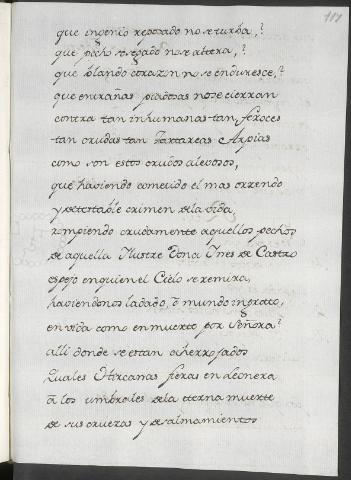 117
que ingenio reposado no se turba,?
que pecho sosegado no se altera,?
que blando corazon no se enduresce,?
que entrañas piadosas no se cierran
contra tan inhumanas tan, feroces
tan crudas tan tartareas Arpias
como son estos crudos alevosos,
que haviendo cometido el mas orrendo
y detestable crimen de la vida,
rompiendo crudamente aquellos pechos
de aquella Ilustre Dona Ines de Castro
espejo en quien el Cielo se remira,
haviendonos la dado, ò mundo ingrato,
en vida como en muerte por Señora?
alli donde se estan aherrojados
Quales Hircanas fieras en Leonera
à los umbrales de la eterna muerte
de sus cruezas y desalmamientos